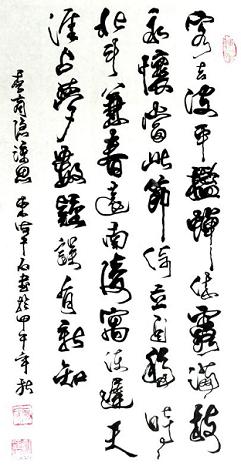 客去波平檻蟬休露滿枝
永懷當此節倚立自移時
北斗兼春遠南陵寓使遲天
涯占夢數疑誤有新知
李商隱涼思 書於甲午年秋